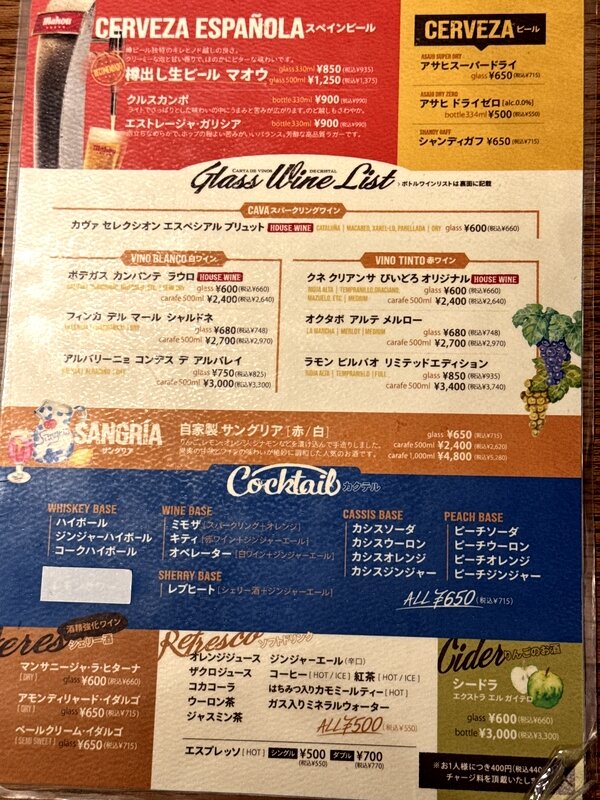 Mahou
CERVEZA ESPAÑOLA スペインビール
樽ビール独特のキレとノド越しの良さ。
クリーミーな泡と甘い香りで、ほのかにビターな味わいです。
RECOMENDADO!
樽出し生ビール マオウ glass330ml ¥850(税込¥935)
glass500ml ¥1,250(税込¥1,375)
クルスカンポ bottle330ml ¥900(税込¥990)
エストレージャ・ガリシア bottle330ml ¥900(税込¥990)
CERVEZA ビール
ASAHI SUPER DRY
アサヒスーパードライ
glass ¥650(税込¥715)
ASAHI DRY ZERO
アサヒ ドライゼロ [alc.0.0%]
bottle334ml ¥500(税込¥550)
SHANDY GAFF
シャンディガフ ¥650(税込¥715)
CARTA DE VINOS DE CRISTAL
Glass Wine List
› ボトルワインリストは裏面に記載
CAVA スパークリングワイン
カヴァ セレクシオン エスペシアル ブリュット HOUSE WINE CATALUÑA | MACABEO, XAREL-LO, PARELLADA | DRY glass ¥600(税込¥660)
VINO BLANCO 白ワイン
ボデガス カンパンテ ラウロ HOUSE WINE
glass ¥600(税込¥660)
carafe 500ml ¥2,400(税込¥2,640)
フィンカ デル マール シャルドネ
glass ¥680(税込¥748)
carafe 500ml ¥2,700(税込¥2,970)
アルバリーニョ コンデス デ アルバレイ
glass ¥750(税込¥825)
carafe 500ml ¥3,000(税込¥3,300)
VINO TINTO 赤ワイン
クネ クリアンサ びいどろ オリジナル HOUSE WINE
RIOJA ALTA | TEMPRANILLO, GRACIANO, glass ¥600(税込¥660)
MAZUELO, ETC | MEDIUM carafe 500ml ¥2,400(税込¥2,640)
オクタボ アルテ メルロー
LA MANCHA | MERLOT | MEDIUM glass ¥680(税込¥748)
carafe 500ml ¥2,700(税込¥2,970)
ラモン ビルバオ リミテッドエディション
RIOJA ALTA | TEMPRANILLO | FULL glass ¥850(税込¥935)
carafe 500ml ¥3,400(税込¥3,740)
Sangria
SANGRÍA
サングリア
自家製 サングリア [赤/白]
りんご、レモン、オレンジ、シナモンなどを漬け込んで手造りしました。
果実の甘味とワインの味わいが絶妙に調和した人気のお酒です。
glass ¥650(税込¥715)
carafe 500ml ¥2,400(税込¥2,620)
carafe 1,000ml ¥4,800(税込¥5,280)
Cocktail カクテル
WHISKEY BASE
ハイボール
ジンジャーハイボール
コークハイボール
WINE BASE
ミモザ [スパークリング+オレンジ]
キティ [赤ワイン+ジンジャーエール]
オペレーター [白ワイン+ジンジャーエール]
SHERRY BASE
レブヒート [シェリー酒+ジンジャーエール]
CASSIS BASE
カシスソーダ
カシスウーロン
カシスオレンジ
カシスジンジャー
PEACH BASE
ピーチソーダ
ピーチウーロン
ピーチオレンジ
ピーチジンジャー
ALL ¥650(税込¥715)
酒精強化ワイン
シェリー酒
マンサニージャ・ラ・ヒターナ
[DRY] glass ¥600(税込¥660)
アモンティリャード・イダルゴ
[DRY] glass ¥650(税込¥715)
ペールクリーム・イダルゴ
[SEMI SWEET] glass ¥650(税込¥715)
Refresco ソフトドリンク
オレンジジュース
ザクロジュース
コカコーラ
ウーロン茶
ジャスミン茶
ジンジャーエール(辛口)
コーヒー [HOT / ICE] 紅茶 [HOT / ICE]
はちみつ入りカモミールティー [HOT]
ガス入りミネラルウォーター
ALL ¥500(税込¥550)
エスプレッソ [HOT] シングル ¥500 ダブル ¥700
(税込¥550) (税込¥770)
Cider りんごのお酒
シードラ
エクストラ エル ガイテロ
glass ¥600(税込¥660)
bottle ¥3,000(税込¥3,300)
※お1人様につき400円(税込440
チャージ料を頂戴いたしま